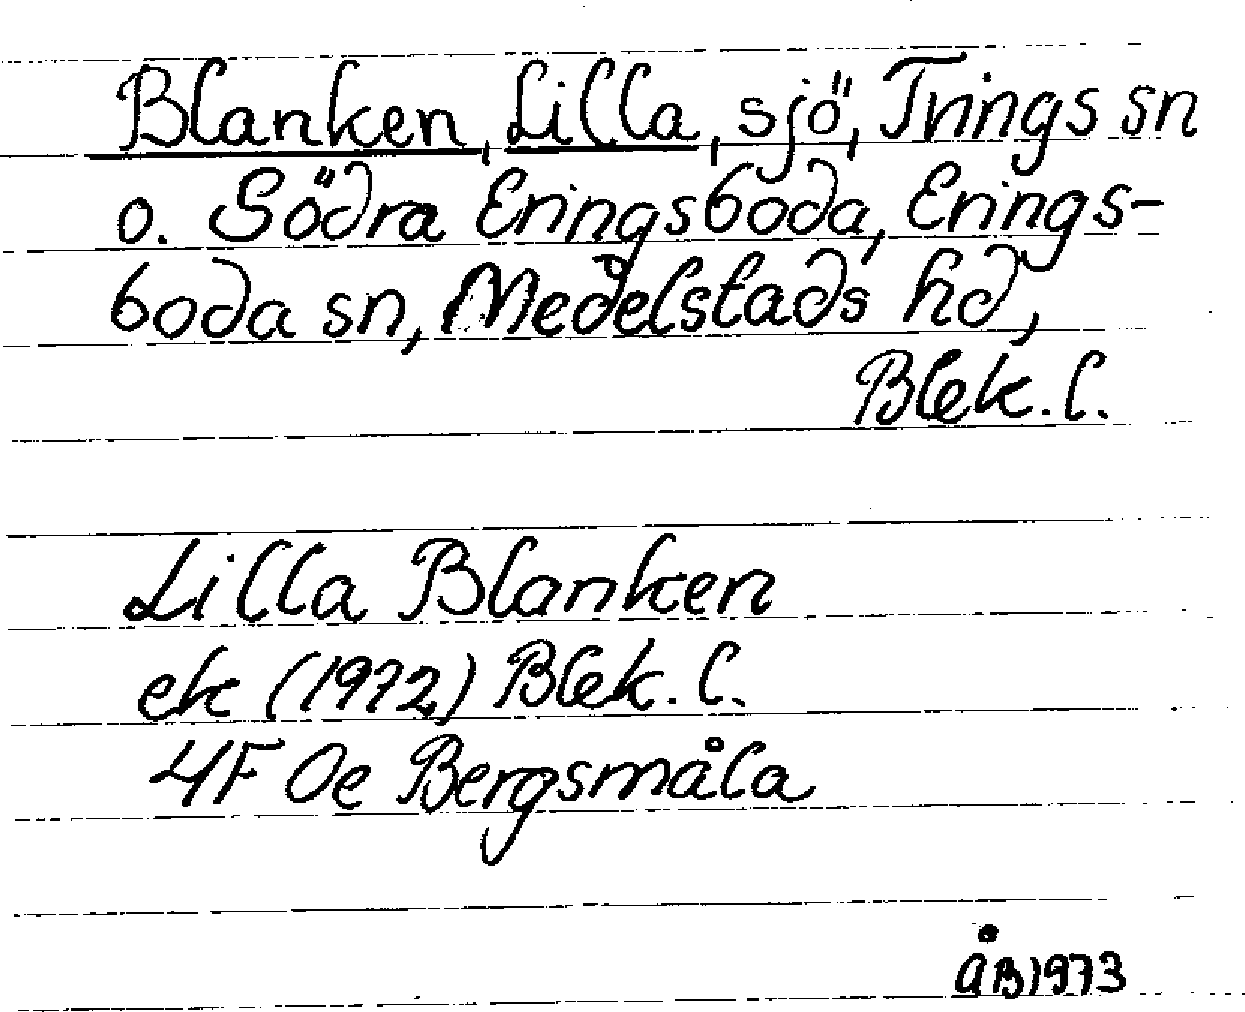 Blanken, Lilla, sjö, Tvings sn
o. Södra Eringsboda, Erings-
boda sn, Medelstads hd,
Blek. l.
Lilla Blanken
ek (1972) Blek. l.
4F 0e Bergsmåla
ÅB 1973